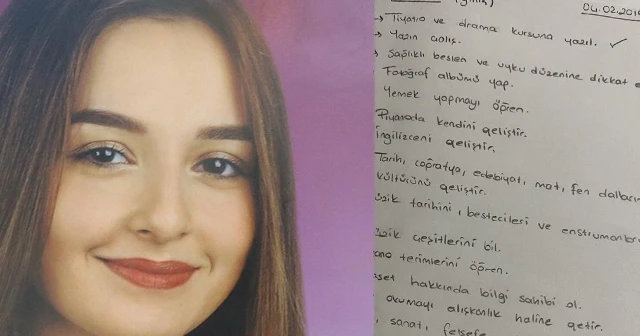 04.02.201
→ Tiyatro ve drama kursuna yazıl. ✓
→ Yazın çalış.
→ Sağlıklı beslen ve uyku düzenine dikkat e
Fotoğraf albümü yap.
Yemek yapmayı öğren.
Piyanoda kendini geliştir.
İngilizceni geliştir.
Tarih, coğrafya, edebiyat, mat, fen dalların
kültürünü geliştir.
üzik tarihini, bestecileri ve enstrümanları
üzik çeşitlerini bil.
ano terimlerini öğren.
aset hakkında bilgi sahibi ol.
okumayı alışkanlık haline getir.
, sanat, felsefe